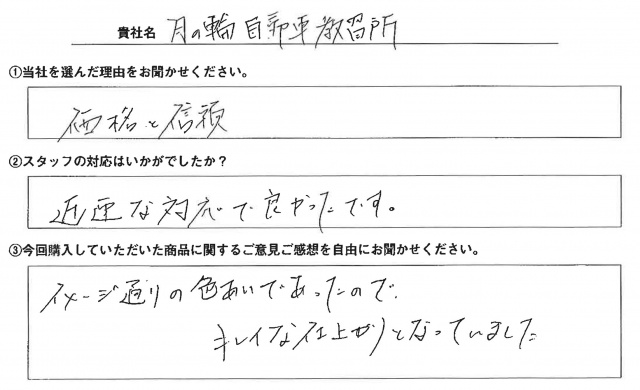 貴社名 月の輪自動車教習所
①当社を選んだ理由をお聞かせください。
価格と信頼
②スタッフの対応はいかがでしたか？
迅速な対応で良かったです。
③今回購入していただいた商品に関するご意見ご感想を自由にお聞かせください。
イメージ通りの色あいであったので、
キレイな仕上がりとなっていました